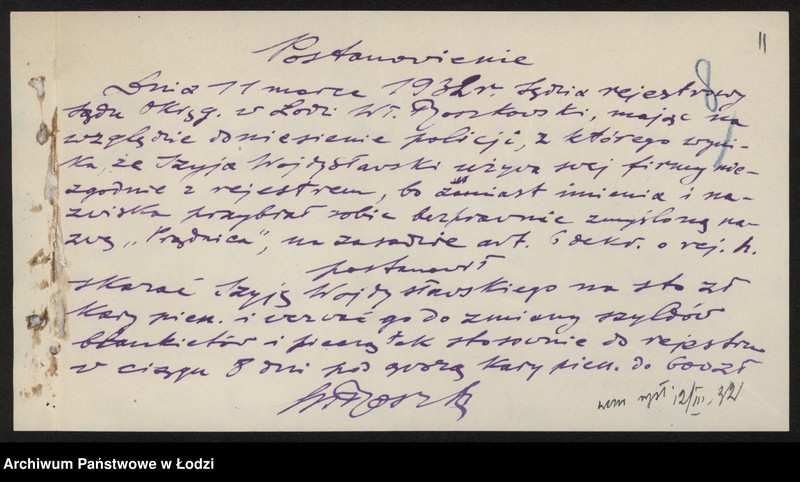 11
8
Postanowienie
Dnia 11 marca 1932 r. Sędzia rejestrowy
Sądu Okręg. w Łodzi Wł. mając na
względzie doniesienie policji, z którego wyni-
ka, że Izyja Wojdysławski używa swej firmy nie-
zgodnie z rejestrem, bo zamiast imienia i na-
zwiska przybrał sobie bezprawnie zmyśloną na-
zwę „Prządnica", na zasadzie art. 6 dekr. o rej. h.
postanowił
skazać Izyję Wojdysławskiego na sto zł
kary pien. i wezwać go do zmiany szyldów
blankietów i pieczątek stosownie do rejestru
w ciągu 8 dni pod grozą kary pien. do 600 zł
wyk. 12/III.32
Archiwum Państwowe w Łodzi